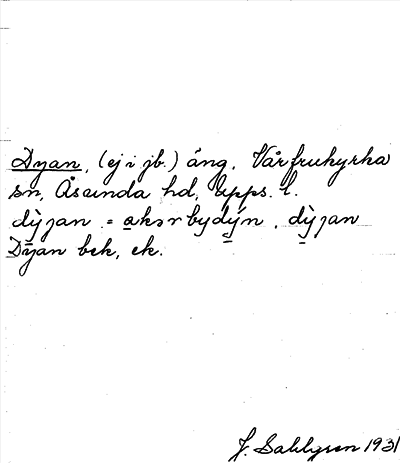 Dyan, (ej i jb.) äng, Vårfrukyrka
sn, Åsunda hd, Upps. l.
dỳȷan = akərbydýn, dỳȷan
Dyan bek, ek.
J. Sahlgren 1931